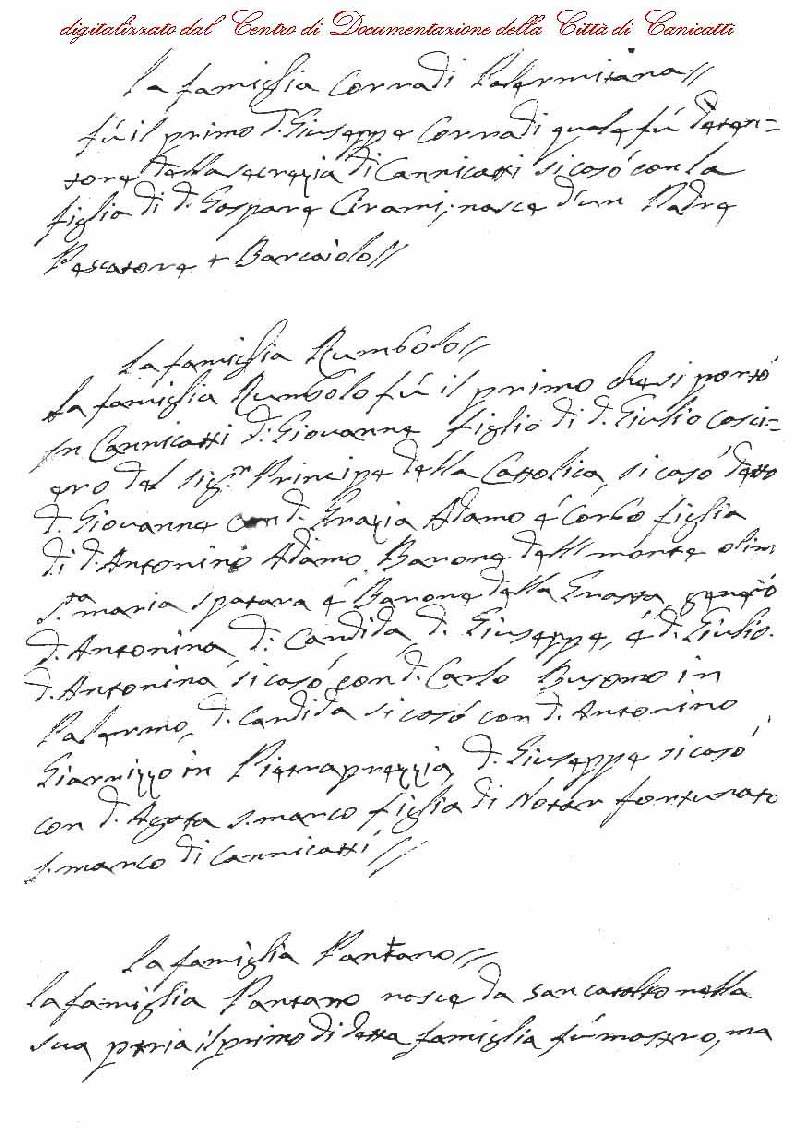 digitalizzato dal Centro di Documentazione della Città di Canicattì
La famiglia Corradi Palermitana//
fú il primo d. Giuseppe Corradi quale fú deten=
tore della secrezia di Cannicatti si casó con la
figlia di d. Gaspare Cirami; nasce d'un Padre
Pescatore e Barcaiolo//
La famiglia Rumbolo//
La famiglia Rumbolo fú il primo che si portó
in Cannicatti d. Giovanne figlio di d. Giulio
ero del sig.r Principe della Cattolica, si casó detto
d. Giovanne con d. Grazia Adamo é Corbo figlia
di d. Antonino Adamo Barone dell monte olim
s.ta maria spatara é Barone della Grotta generó
d. Antonina, d. Candida, d. Giuseppe, é d. Giulio.
d. Antonina si casó con d. Carlo in
Palermo, d. Candida si casó con d. Antonino
Giarnizzo in Pietraprezzia, d. Giuseppe si casó
con d. Agata s. marco figlia di Notar fortunato
s. marco di Cannicatti//
La famiglia Pantano//
La famiglia Pantano nasce da san cataldo nella
sua patria il primo di detta famiglia fú mastro, ma